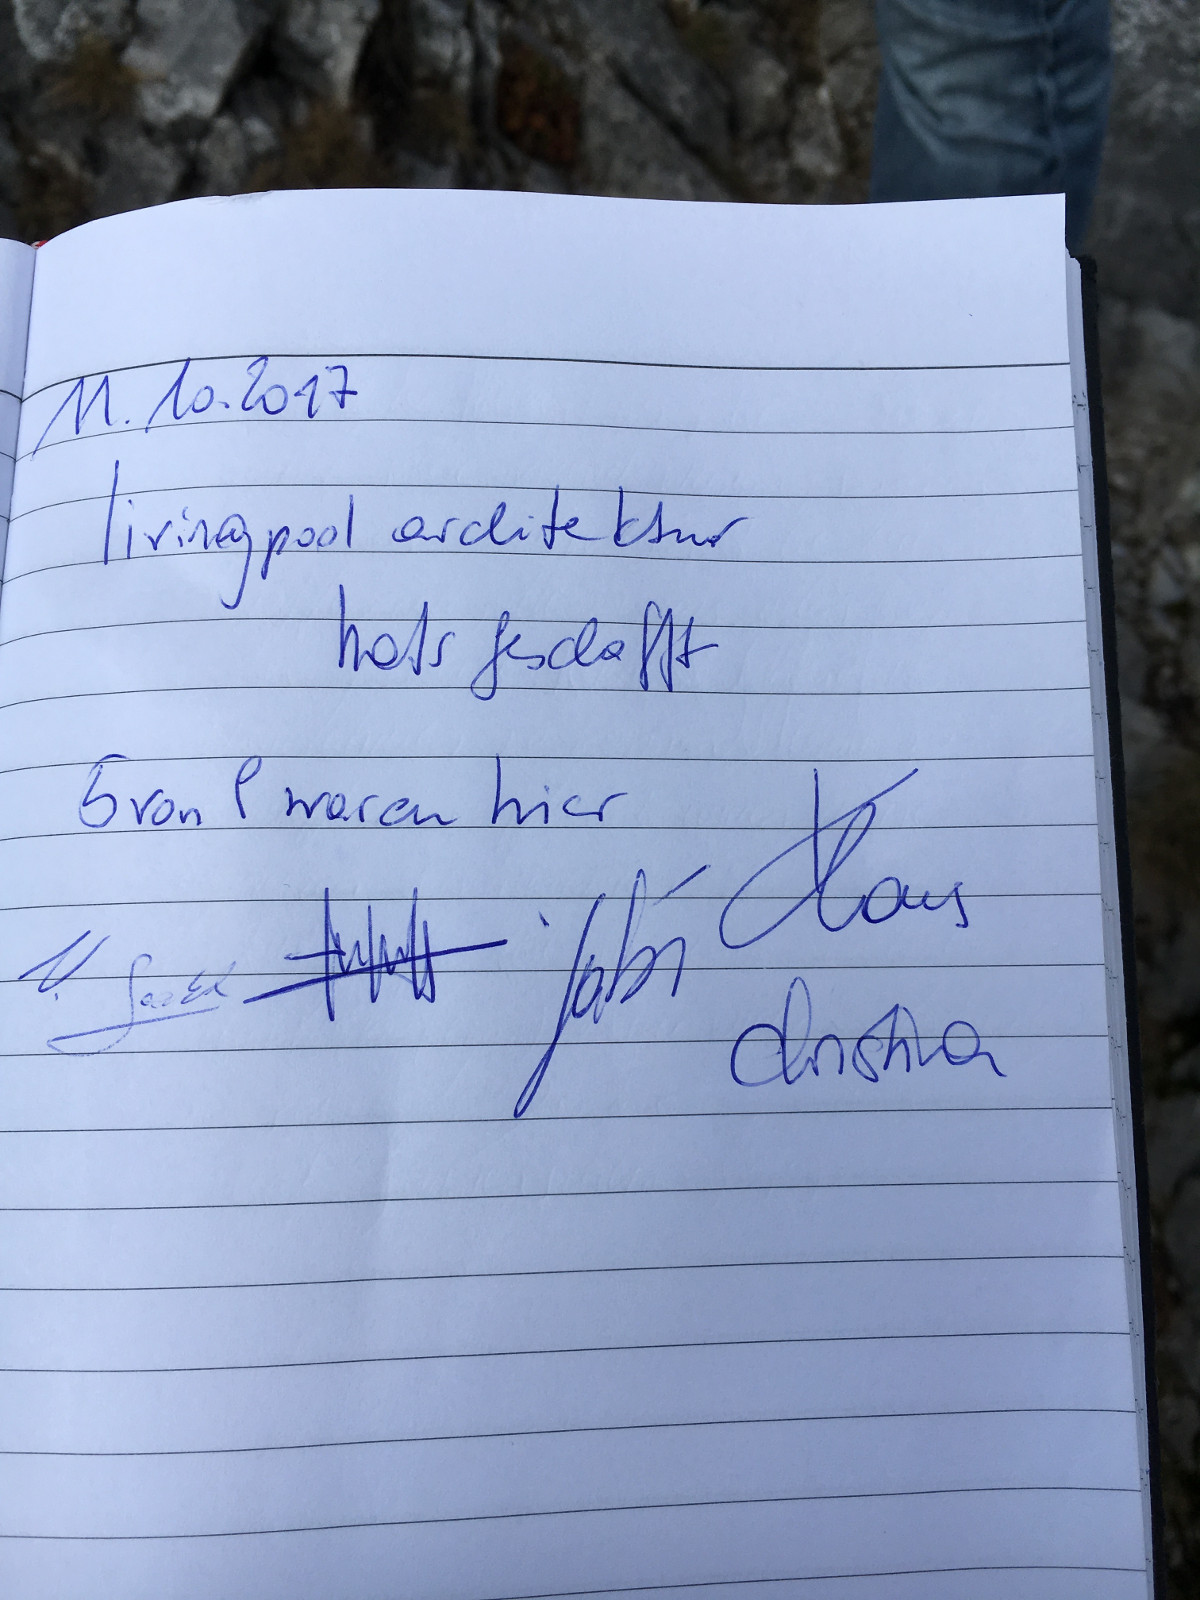 11.10.2017
livingpool architektur
hats geschafft
5 von 8 waren hier
Klaus
Gabi
Christina